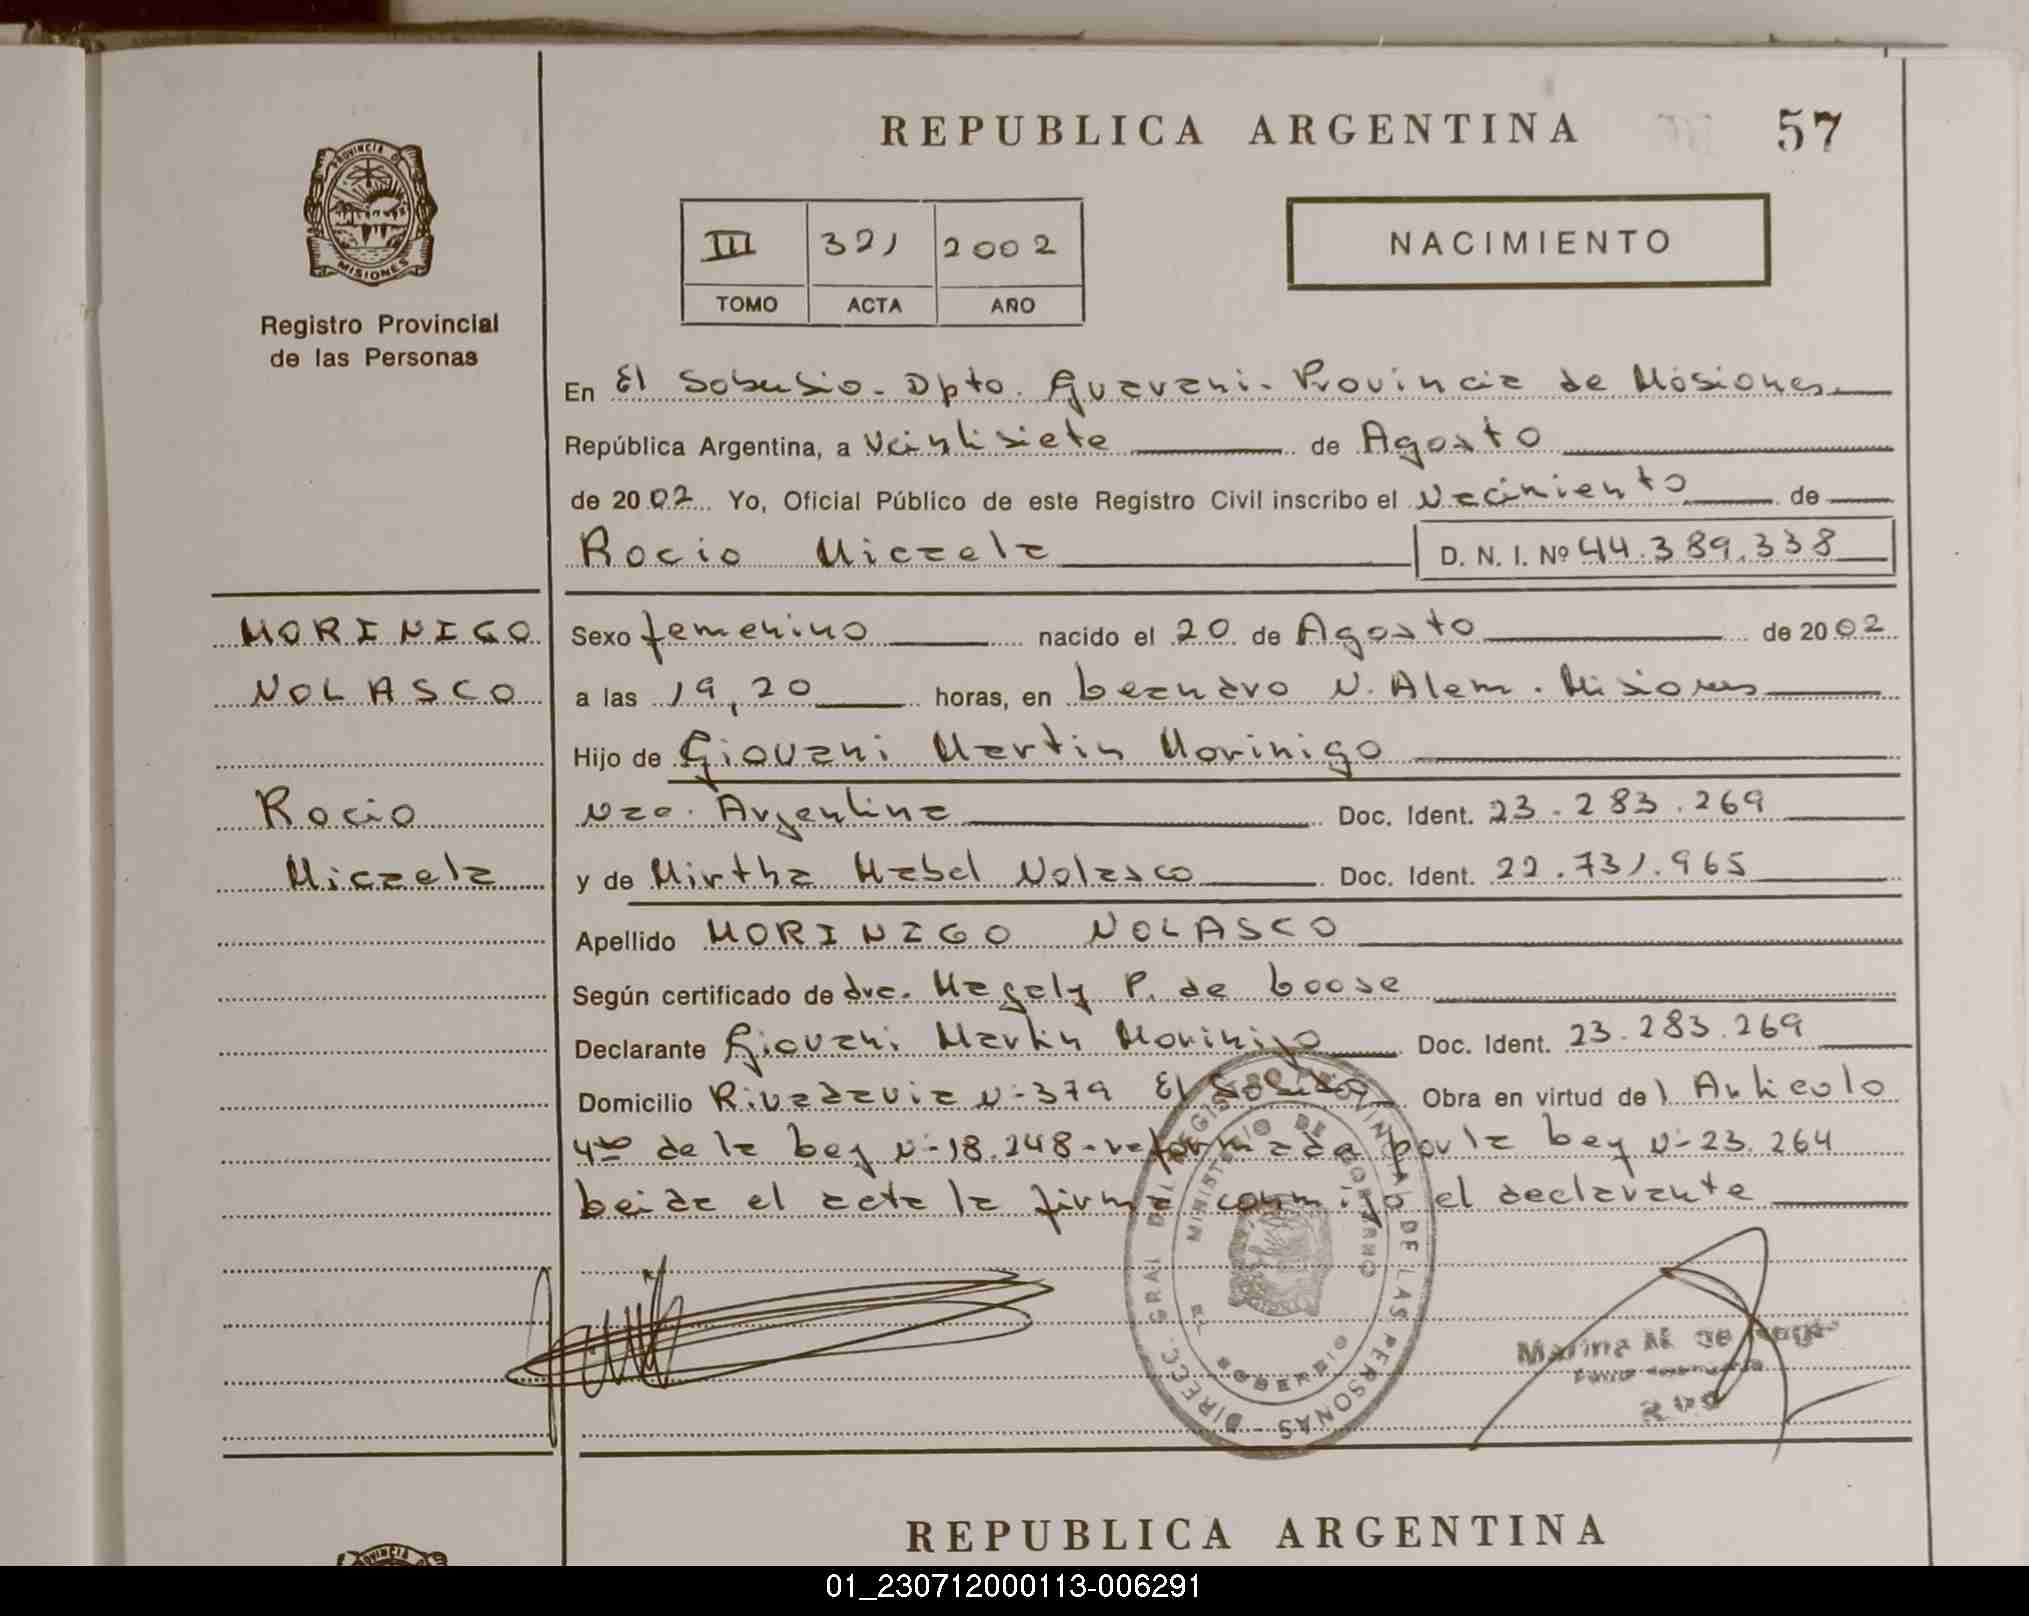 REPUBLICA ARGENTINA 57
PROVINCIA DE
MISIONES
Registro Provincial
de las Personas
III 321 2002
TOMO ACTA AÑO
NACIMIENTO
En El Soberbio - Dpto. Guarani - Provincia de Misiones
República Argentina, a Veintisiete de Agosto
de 2002 Yo, Oficial Público de este Registro Civil inscribo el Nacimiento de
Rocio Micaela D. N. I. Nº 44.389.338
MORINIGO
NOLASCO
Rocio
Micaela
Sexo femenino nacido el 20 de Agosto de 2002
a las 19,20 horas, en Leandro N. Alem - Misiones
Hijo de Giovani Martin Morinigo
Nac. Argentina Doc. Ident. 23.283.269
y de Mirtha Mabel Nolasco Doc. Ident. 22.731.965
Apellido MORINIGO NOLASCO
Según certificado de dra. Magaly P. de Loose
Declarante Giovani Martin Morinigo Doc. Ident. 23.283.269
Domicilio Rivadavia N-379 El Soberbio Obra en virtud del Articulo
4to de la Ley N-18.248-reformada por la Ley N-23.264
Leida el acta la firma conmigo el declarante
DIRECC. GRAL DEL REGISTRO PROVINCIAL DE LAS PERSONAS
MINISTERIO DE GOBIERNO
EL SOBERBIO
Marina M. de
REPUBLICA ARGENTINA
PROVINCIA
01_230712000113-006291